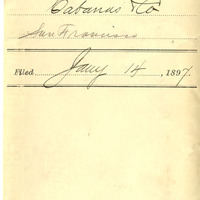 Cabanas & Co
San Francisco
Filed Jany 14, 1897.